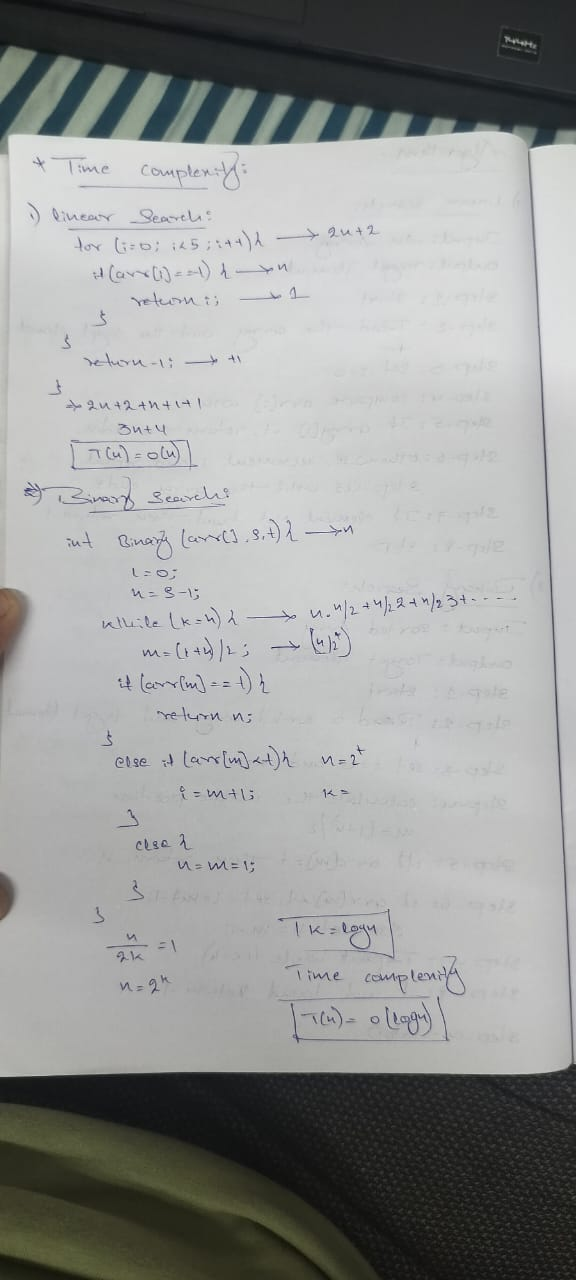 * Time complexity:
1) linear Search:
for (i=0; i<5; i++){ → 2n+2
if(arr[i]==t) { → n
return i; → 1
}
}
return -1; → +1
}
⇒ 2n+2+n+1+1
3n+4
T(n) = O(n)
2) Binary search:
int Binary (arr[], s, t) { → n
l=0;
h = s-1;
while (l<=h) { → n, n/2 + n/2 2 + n/2 3 + - - - - -
m = (l+h)/2; →
if (arr[m] == t) {
return m;
}
else if (arr[m] < t) { n=2
l = m+1; k=
}
else {
h = m=1;
}
}
n/2k = 1 k = logn
n = 2^k Time complexity
T(n) = O(logn)
144Hz